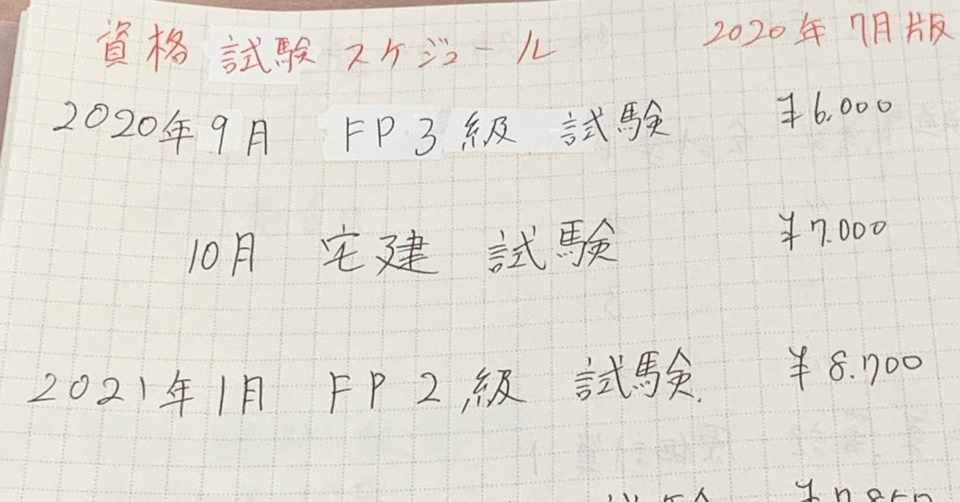 資格 試験 スケジュール 2020年 7月版
2020年9月 FP3級 試験 ¥6.000
10月 宅建 試験 ¥7.000
2021年1月 FP2級 試験 ¥8.700